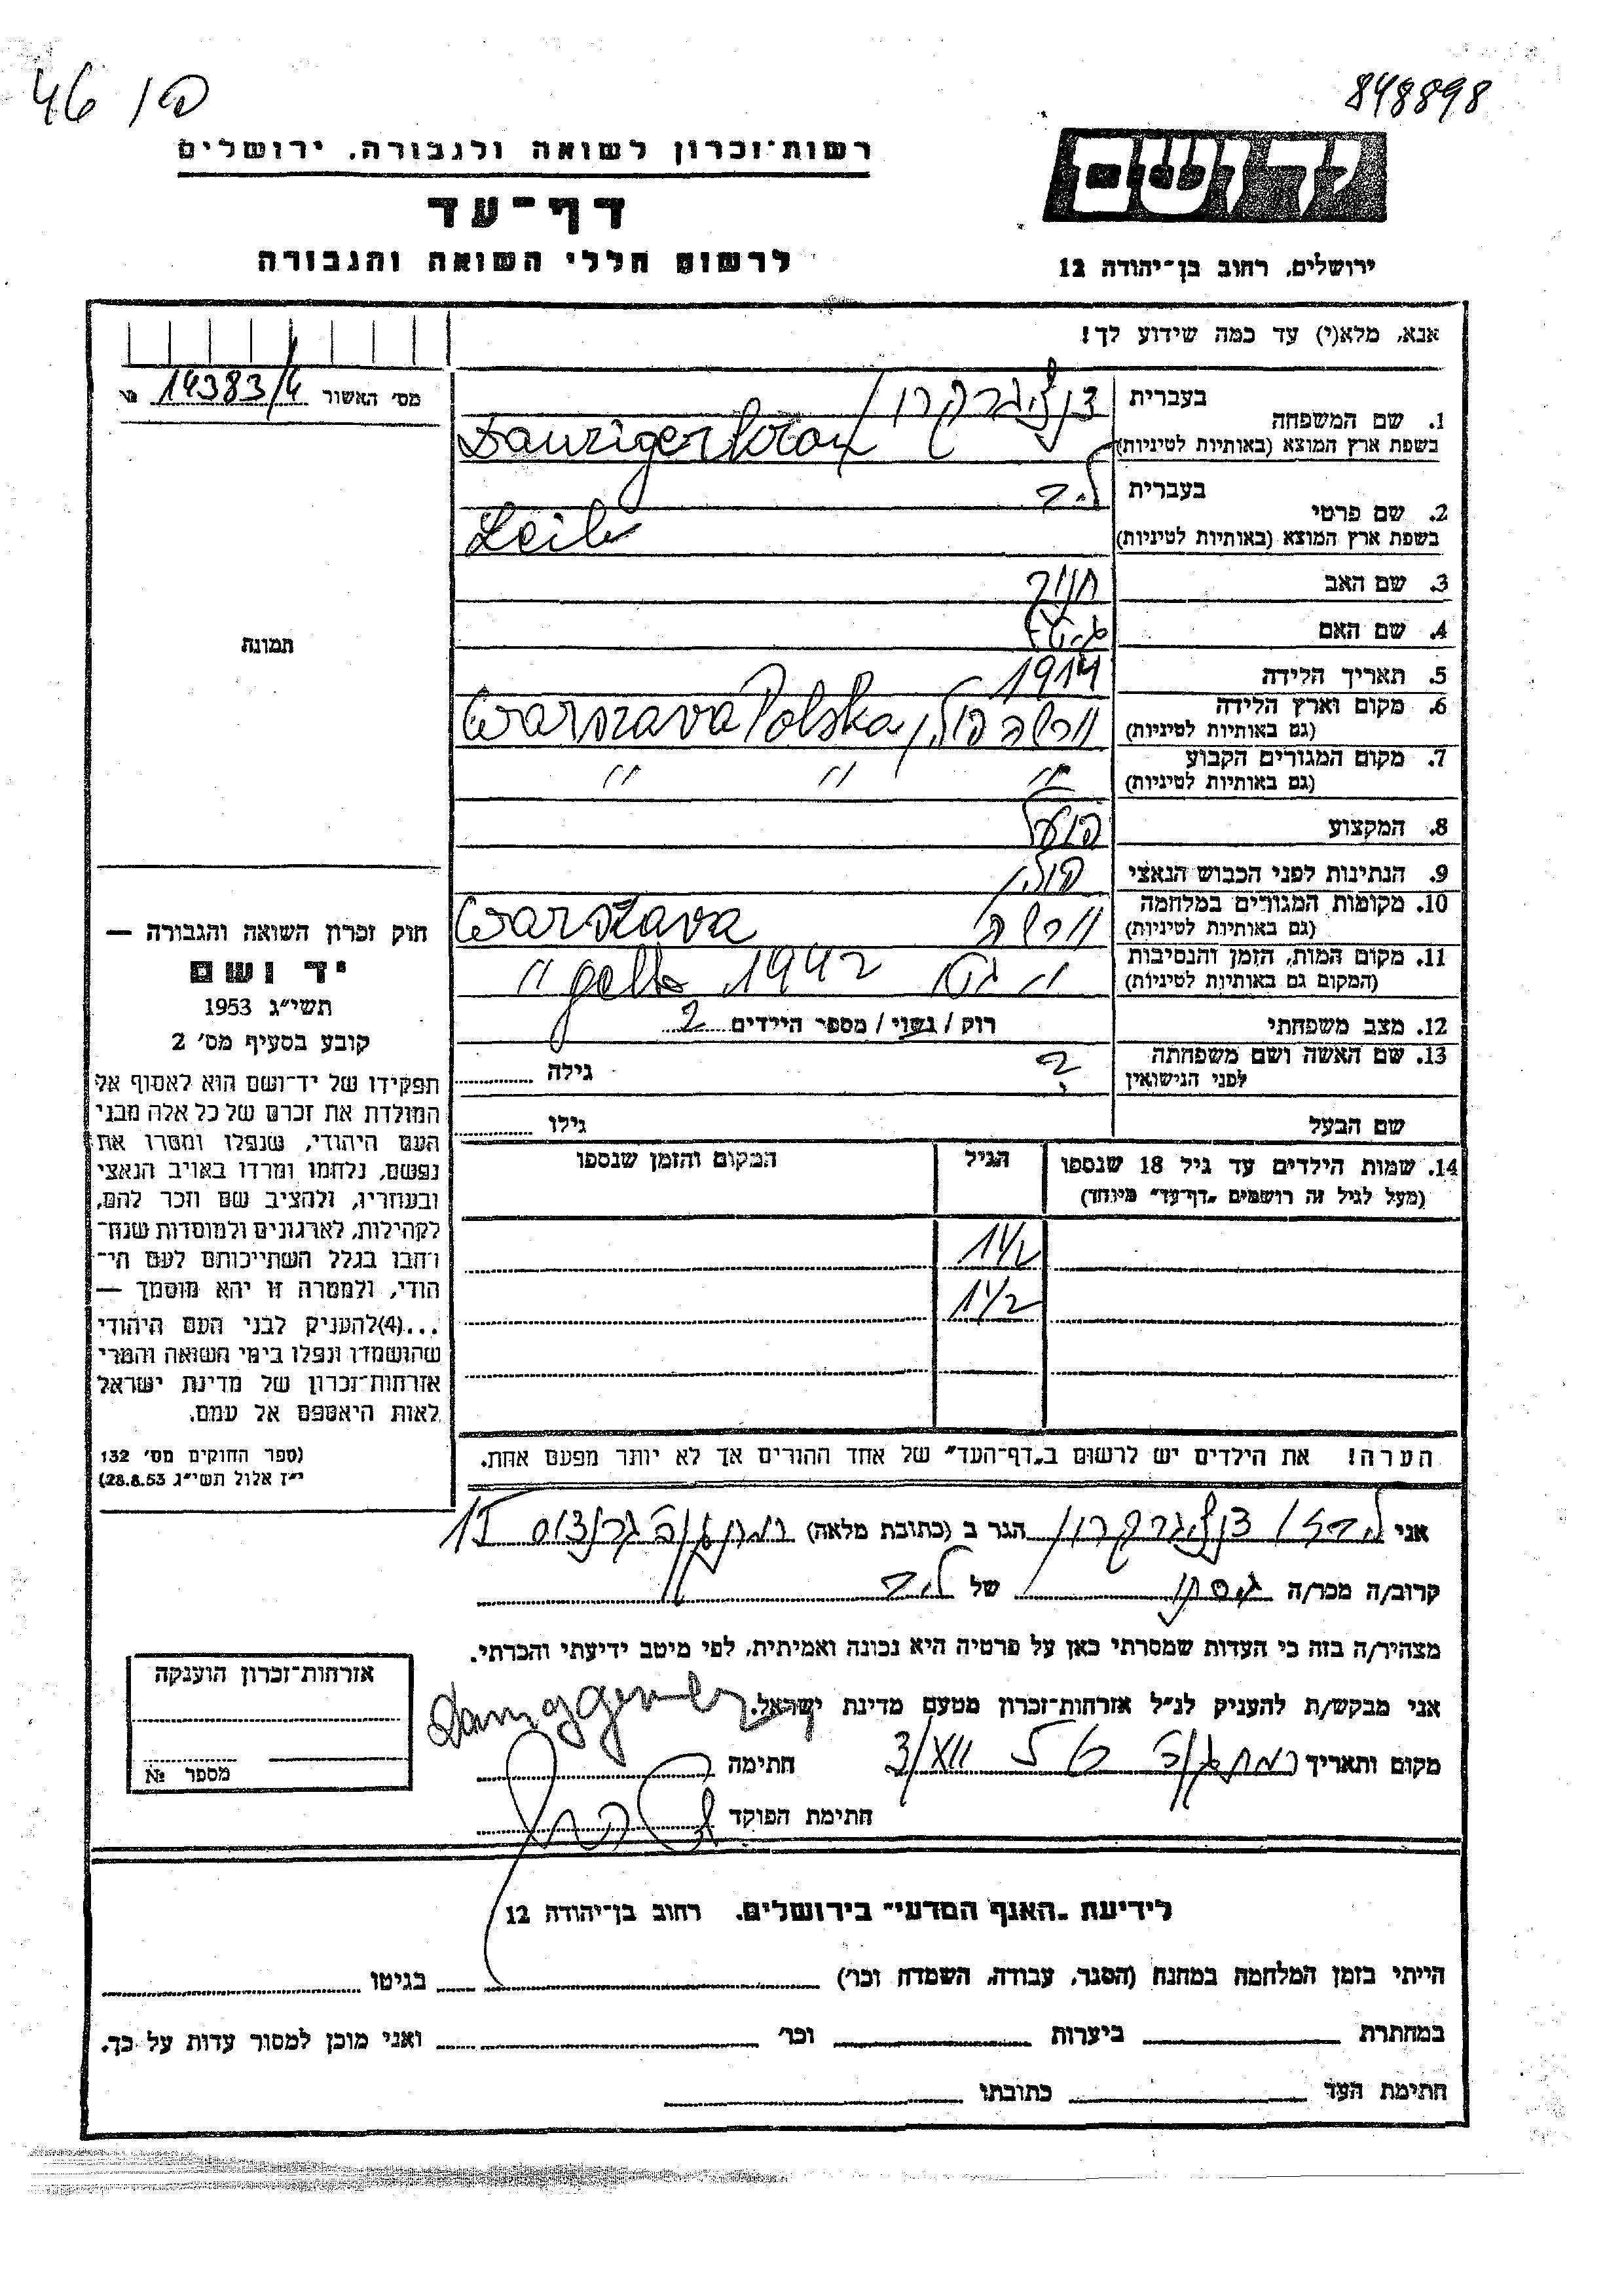 46 פו
848898
רשות־זכרון לשואה ולגבורה, ירושלים
יד ושם
דף־עד
לרשום חללי השואה והגבורה
ירושלים, רחוב בן־יהודה 12
אנא, מלא(י) עד כמה שידוע לך!
מס׳ האשור 14383/4
1. שם המשפחה
בעברית דנציגרקרון
בשפת ארץ המוצא (באותיות לטיניות) Danzigerkron
2. שם פרטי
בעברית ליב
בשפת ארץ המוצא (באותיות לטיניות) Leib
3. שם האב חנוך
4. שם האם
5. תאריך הלידה 1914
6. מקום וארץ הלידה
(גם באותיות לטיניות) ורשה פולין Warszava Polska
7. מקום המגורים הקבוע
(גם באותיות לטיניות) " " "
8. המקצוע פועל
9. הנתינות לפני הכבוש הנאצי פולין
10. מקומות המגורים במלחמה
(גם באותיות לטיניות) ורשה Warszava
11. מקום המות, הזמן והנסיבות
(המקום גם באותיות לטיניות) " גטו 1942 getto "
12. מצב משפחתי רוק / נשוי / מספר הילדים 2
13. שם האשה ושם משפחתה
לפני הנישואין ? גילה
שם הבעל גילו
14. שמות הילדים עד גיל 18 שנספו
(מעל לגיל זה רושמים "דף־עד" מיוחד)
הגיל
המקום והזמן שנספו
1 1/2
1 1/2
הערה! את הילדים יש לרשום ב"דף־העד" של אחד ההורים אך לא יותר מפעם אחת.
תמונה
חוק זכרון השואה והגבורה —
יד ושם
תשי״ג 1953
קובע בסעיף מס׳ 2
תפקידו של יד־ושם הוא לאסוף אל
המולדת את זכרם של כל אלה מבני
העם היהודי, שנפלו ומסרו את
נפשם, נלחמו ומרדו באויב הנאצי
ובעוזריו, ולהציב שם וזכר להם,
לקהילות, לארגונים ולמוסדות שנח־
רבו בגלל השתייכותם לעם הי־
הודי, ולמטרה זו יהא מוסמך —
...(4) להעניק לבני העם היהודי
שהושמדו ונפלו בימי השואה והמרי
אזרחות־זכרון של מדינת ישראל
לאות היאספם אל עמם.
(ספר החוקים מס׳ 132
י״ז אלול תשי״ג 28.8.53)
אני דנציגרקרון הגר ב (כתובת מלאה)
קרוב/ה מכר/ה גיסתו של ליב
מצהיר/ה בזה כי העדות שמסרתי כאן על פרטיה היא נכונה ואמיתית, לפי מיטב ידיעתי והכרתי.
אני מבקש/ת להעניק לנ״ל אזרחות־זכרון מטעם מדינת ישראל.
מקום ותאריך 3/XII חתימה
חתימת הפוקד
אזרחות־זכרון הוענקה
מספר №
לידיעת "האגף המדעי" בירושלים, רחוב בן־יהודה 12
הייתי בזמן המלחמה במחנה (הסגר, עבודה, השמדה וכו׳) בגיטו
במחתרת ביערות וכו׳ ואני מוכן למסור עדות על כך.
חתימת העד כתובתו